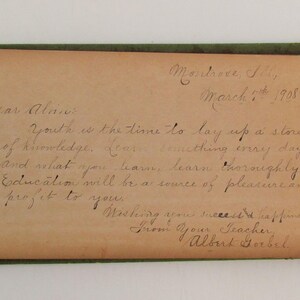 Montrose
March 5th 1908
ear Alan:
Youth is the time to lay up a stor
of knowledge. Learn something every day
and what you learn, learn thoroughly
Education will be a source of pleasure a
profit to you.
Wishing you success & happin
From Your Teacher
Albert